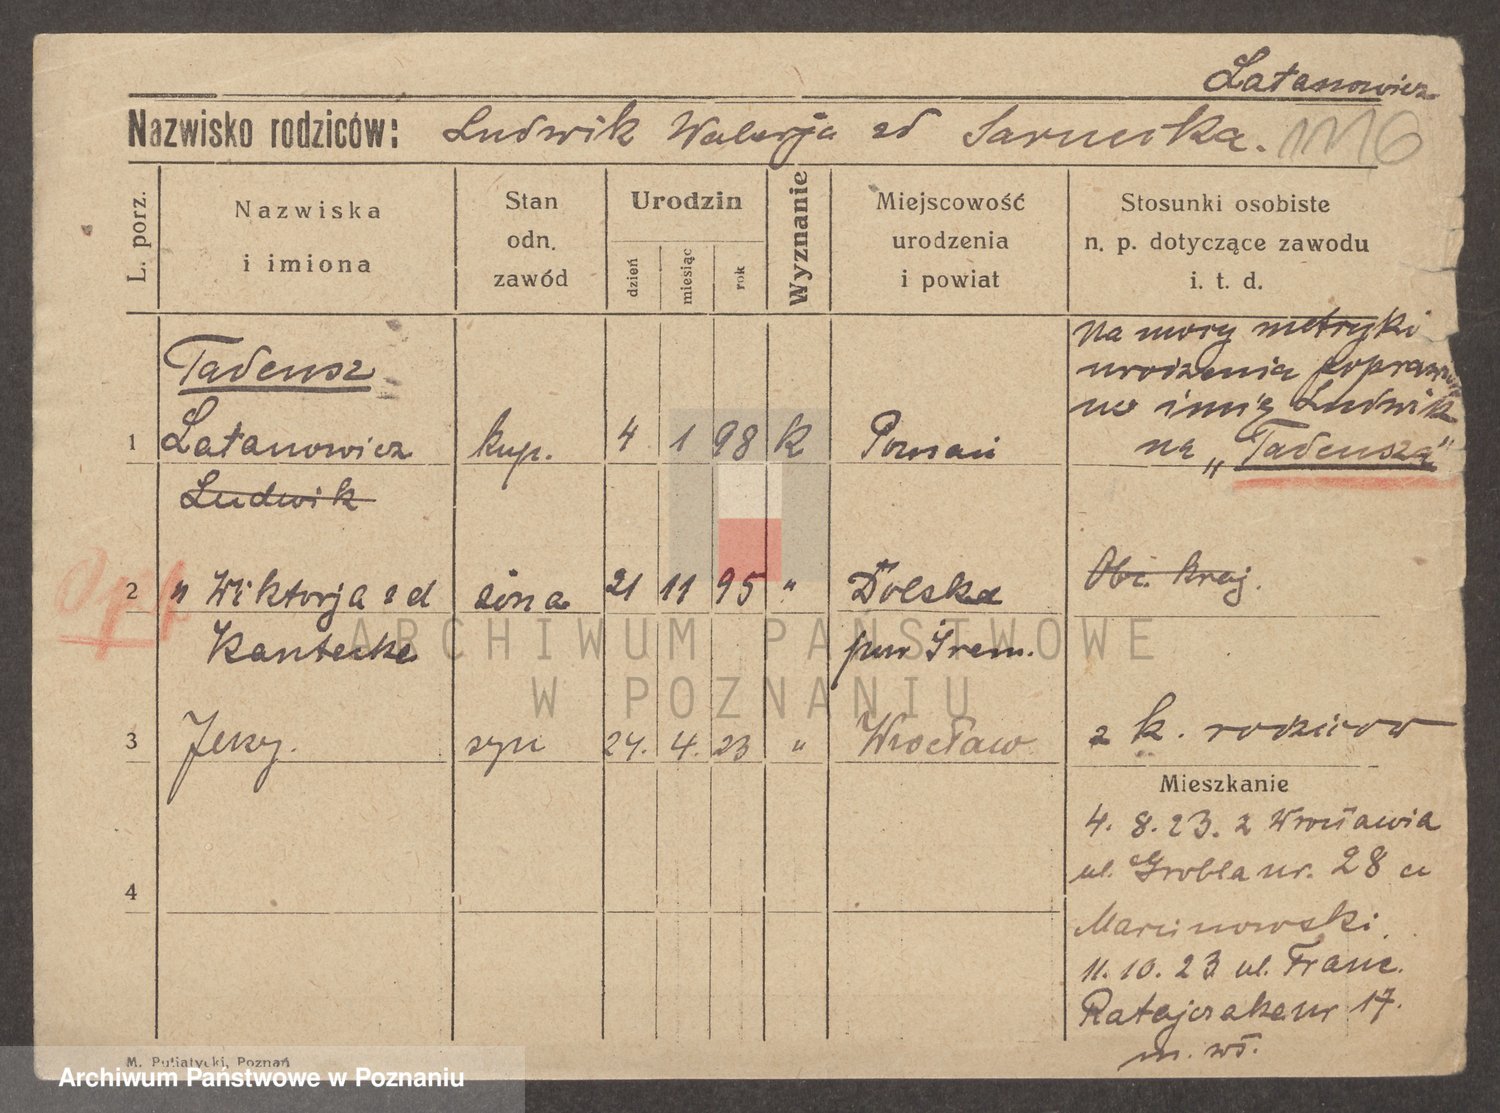 Latanowicz
Nazwisko rodziców: Ludwik Walerja zd Sarnecka.
L. porz.
Nazwiska
i imiona
Stan
odn.
zawód
Urodzin
dzień
miesiąc
rok
Wyznanie
Miejscowość
urodzenia
i powiat
Stosunki osobiste
n. p. dotyczące zawodu
i. t. d.
Tadeusz
1 Latanowicz kup. 4 1 98 K Poznań
Ludwik
na mocy metryki
urodzenia popraw
no imię Ludwik
na „Tadeusza"
Opt
2 " Wiktorja zd żona 21 11 95 " Dolska
Kantecke pow Śrem.
Obc. kraj.
3 Jerzy. syn 24. 4. 23 " Wrocław
z k. rodziców
Mieszkanie
4. 8. 23. z Wrocławia
ul. Grobla nr. 28 a
4
Marcinowski.
11. 10. 23 ul. Franc.
Ratajczaka nr 17.
m. wł.
ARCHIWUM PAŃSTWOWE
W POZNANIU
M. Putiatycki, Poznań
Archiwum Państwowe w Poznaniu